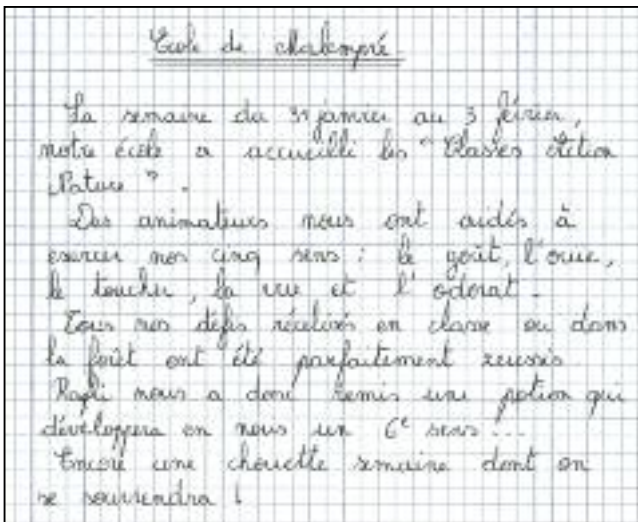 École de chabompré
La semaine du 31 janvier au 3 février,
notre école a accueilli les "Classes Action
Nature".
Des animateurs nous ont aidés à
exercer nos cinq sens : le goût, l'ouïe,
le toucher, la vue et l'odorat.
Tous nos défis réalisés en classe ou dans
la forêt ont été parfaitement réussis
nous a donc remis une potion qui
développera en nous un 6e sens ...
Encore une chouette semaine dont on
se souviendra !